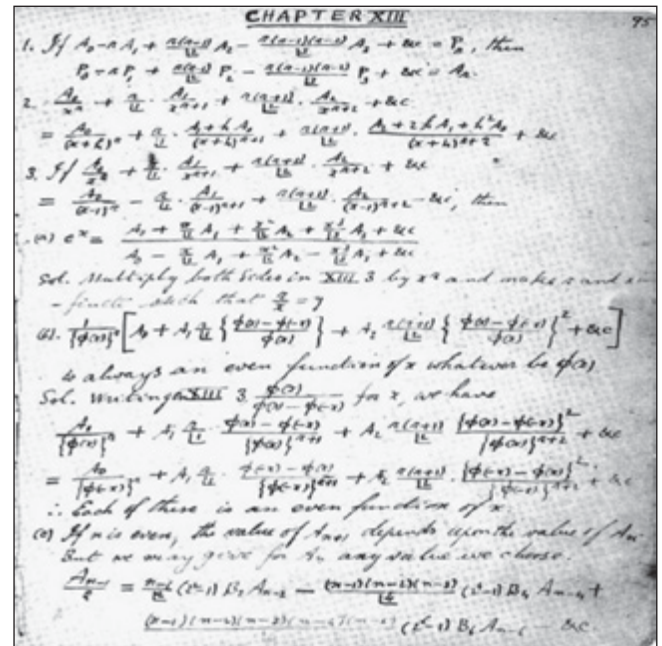 CHAPTER XIII
95
1. If A₀ - n A₁ + n(n-1)/⌊2 A₂ - n(n-1)(n-2)/⌊3 A₃ + &c = P₀, then
P₀ - n P₁ + n(n-1)/⌊2 P₂ - n(n-1)(n-2)/⌊3 P₃ + &c = Aₙ.
2. A₀/xⁿ + n/⌊1 · A₁/xⁿ⁺¹ + n(n+1)/⌊2 · A₂/xⁿ⁺² + &c
= A₀/(x+h)ⁿ + n/⌊1 · (A₁ + h A₀)/(x+h)ⁿ⁺¹ + n(n+1)/⌊2 · (A₂ + 2h A₁ + h² A₀)/(x+h)ⁿ⁺² + &c
3. If A₀/xⁿ + n/⌊1 · A₁/xⁿ⁺¹ + n(n+1)/⌊2 · A₂/xⁿ⁺² + &c
= A₀/(x-1)ⁿ - n/⌊1 · A₁/(x-1)ⁿ⁺¹ + n(n+1)/⌊2 · A₂/(x-1)ⁿ⁺² - &c, then
(a) eˣ = (A₀ + x/⌊1 A₁ + x²/⌊2 A₂ + x³/⌊3 A₃ + &c)/(A₀ - x/⌊1 A₁ + x²/⌊2 A₂ - x³/⌊3 A₃ + &c)
Sol. Multiply both sides in XIII 3 by xⁿ and make x and n in
-finite such that n/x = y
(b). 1/{φ(x)}ⁿ [A₀ + A₁ n/⌊1 {(φ(x) - φ(-x))/φ(x)} + A₂ n(n+1)/⌊2 {(φ(x) - φ(-x))/φ(x)}² + &c]
is always an even function of x whatever be φ(x)
Sol. Writing XIII 3. φ(x)/(φ(x) - φ(-x)) for x, we have
A₀/{φ(x)}ⁿ + A₁ n/⌊1 · (φ(x) - φ(-x))/{φ(x)}ⁿ⁺¹ + A₂ n(n+1)/⌊2 {φ(x) - φ(-x)}²/{φ(x)}ⁿ⁺² + &c
= A₀/{φ(-x)}ⁿ + A₁ n/⌊1 · (φ(-x) - φ(x))/{φ(-x)}ⁿ⁺¹ + A₂ n(n+1)/⌊2 · {φ(-x) - φ(x)}²/{φ(-x)}ⁿ⁺² + &c
∴ Each of these is an even function of x.
(c) If n is even, the value of Aₙ₊₁ depends upon the value of Aₙ.
But we may give for Aₙ any value we choose.
Aₙ₋₁/2 = (n-1)/⌊2 (2²-1) B₂ Aₙ₋₂ - (n-1)(n-2)(n-3)/⌊4 (2⁴-1) B₄ Aₙ₋₄ +
(n-1)(n-2)(n-3)(n-4)(n-5) (2⁶-1) B₆ Aₙ₋₆ - &c.